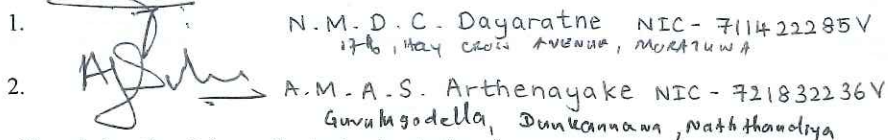 1. N.M.D.C. Dayaratne NIC - 711422285V
17/6, Hay Cross AVENUE, MORATUWA
2. A.M.A.S. Arthenayake NIC - 721832236V
Gurulugodella, Dunkannawa, Naththandiya